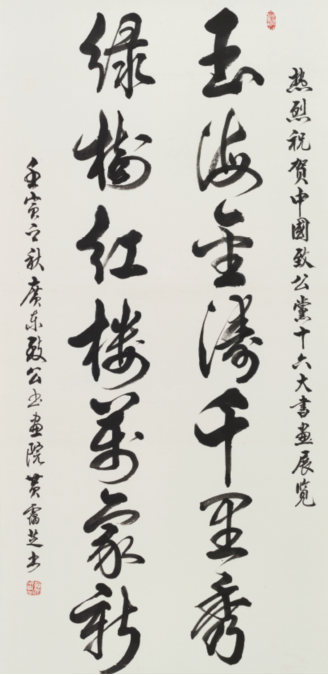 热烈祝贺中國致公黨十六大書画展览
玉海金涛千里秀
绿樹红楼萬象新
壬寅之秋廣东致公书画院黄霭芝书